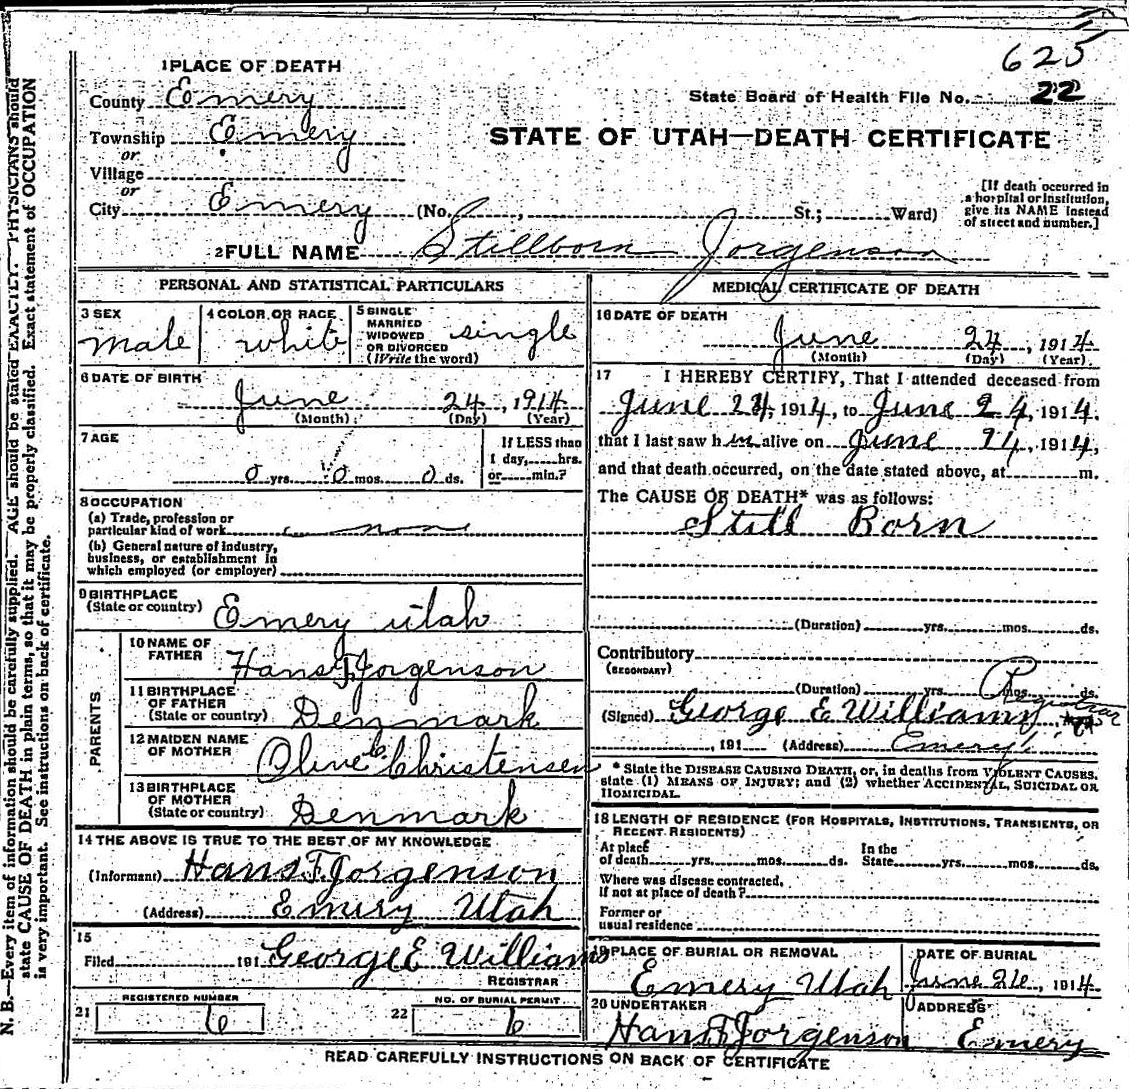 625
1 PLACE OF DEATH
County Emery
State Board of Health File No. 22
Township Emery
or
STATE OF UTAH—DEATH CERTIFICATE
Village
or
City Emery (No. , St.; Ward)
[If death occurred in a hospital or institution, give its NAME instead of street and number.]
2 FULL NAME Stillborn Jorgenson
PERSONAL AND STATISTICAL PARTICULARS
3 SEX
male
4 COLOR OR RACE
white
5 SINGLE
MARRIED
WIDOWED
OR DIVORCED
(Write the word)
single
6 DATE OF BIRTH
June 24, 1914
(Month) (Day) (Year)
7 AGE
0 yrs. 0 mos. 0 ds.
If LESS than
1 day, hrs.
or min.?
8 OCCUPATION
(a) Trade, profession or
particular kind of work non
(b) General nature of industry,
business, or establishment in
which employed (or employer)
9 BIRTHPLACE
(State or country) Emery utah
PARENTS
10 NAME OF
FATHER Hans F. Jorgenson
11 BIRTHPLACE
OF FATHER
(State or country) Denmark
12 MAIDEN NAME
OF MOTHER Olive C. Christensen
13 BIRTHPLACE
OF MOTHER
(State or country) Denmark
14 THE ABOVE IS TRUE TO THE BEST OF MY KNOWLEDGE
(Informant) Hans F. Jorgenson
(Address) Emery Utah
15
Filed 191 George E Williams
REGISTRAR
21 REGISTERED NUMBER 6
22 NO. OF BURIAL PERMIT 6
MEDICAL CERTIFICATE OF DEATH
16 DATE OF DEATH
June 24, 1914
(Month) (Day) (Year)
17 I HEREBY CERTIFY, That I attended deceased from
June 24, 1914, to June 24, 1914.
that I last saw him alive on June 24, 1914,
and that death occurred, on the date stated above, at m.
The CAUSE OF DEATH* was as follows:
Still Born
(Duration) yrs. mos. ds.
Contributory
(SECONDARY)
(Duration) yrs. mos. ds.
Registrar
(Signed) George E Williams
, 191 (Address) Emery
* State the DISEASE CAUSING DEATH, or, in deaths from VIOLENT CAUSES,
state (1) MEANS OF INJURY; and (2) whether ACCIDENTAL, SUICIDAL OR
HOMICIDAL.
18 LENGTH OF RESIDENCE (FOR HOSPITALS, INSTITUTIONS, TRANSIENTS, OR
RECENT RESIDENTS)
At place
of death yrs. mos. ds.
In the
State yrs. mos. ds.
Where was disease contracted,
if not at place of death?
Former or
usual residence
19 PLACE OF BURIAL OR REMOVAL
Emery Utah
DATE OF BURIAL
June 26, 1914.
20 UNDERTAKER
Hans F. Jorgenson
ADDRESS
Emery
READ CAREFULLY INSTRUCTIONS ON BACK OF CERTIFICATE
N. B.—Every item of information should be carefully supplied. AGE should be stated EXACTLY. PHYSICIANS should
state CAUSE OF DEATH in plain terms, so that it may be properly classified. Exact statement of OCCUPATION
is very important. See instructions on back of certificate.